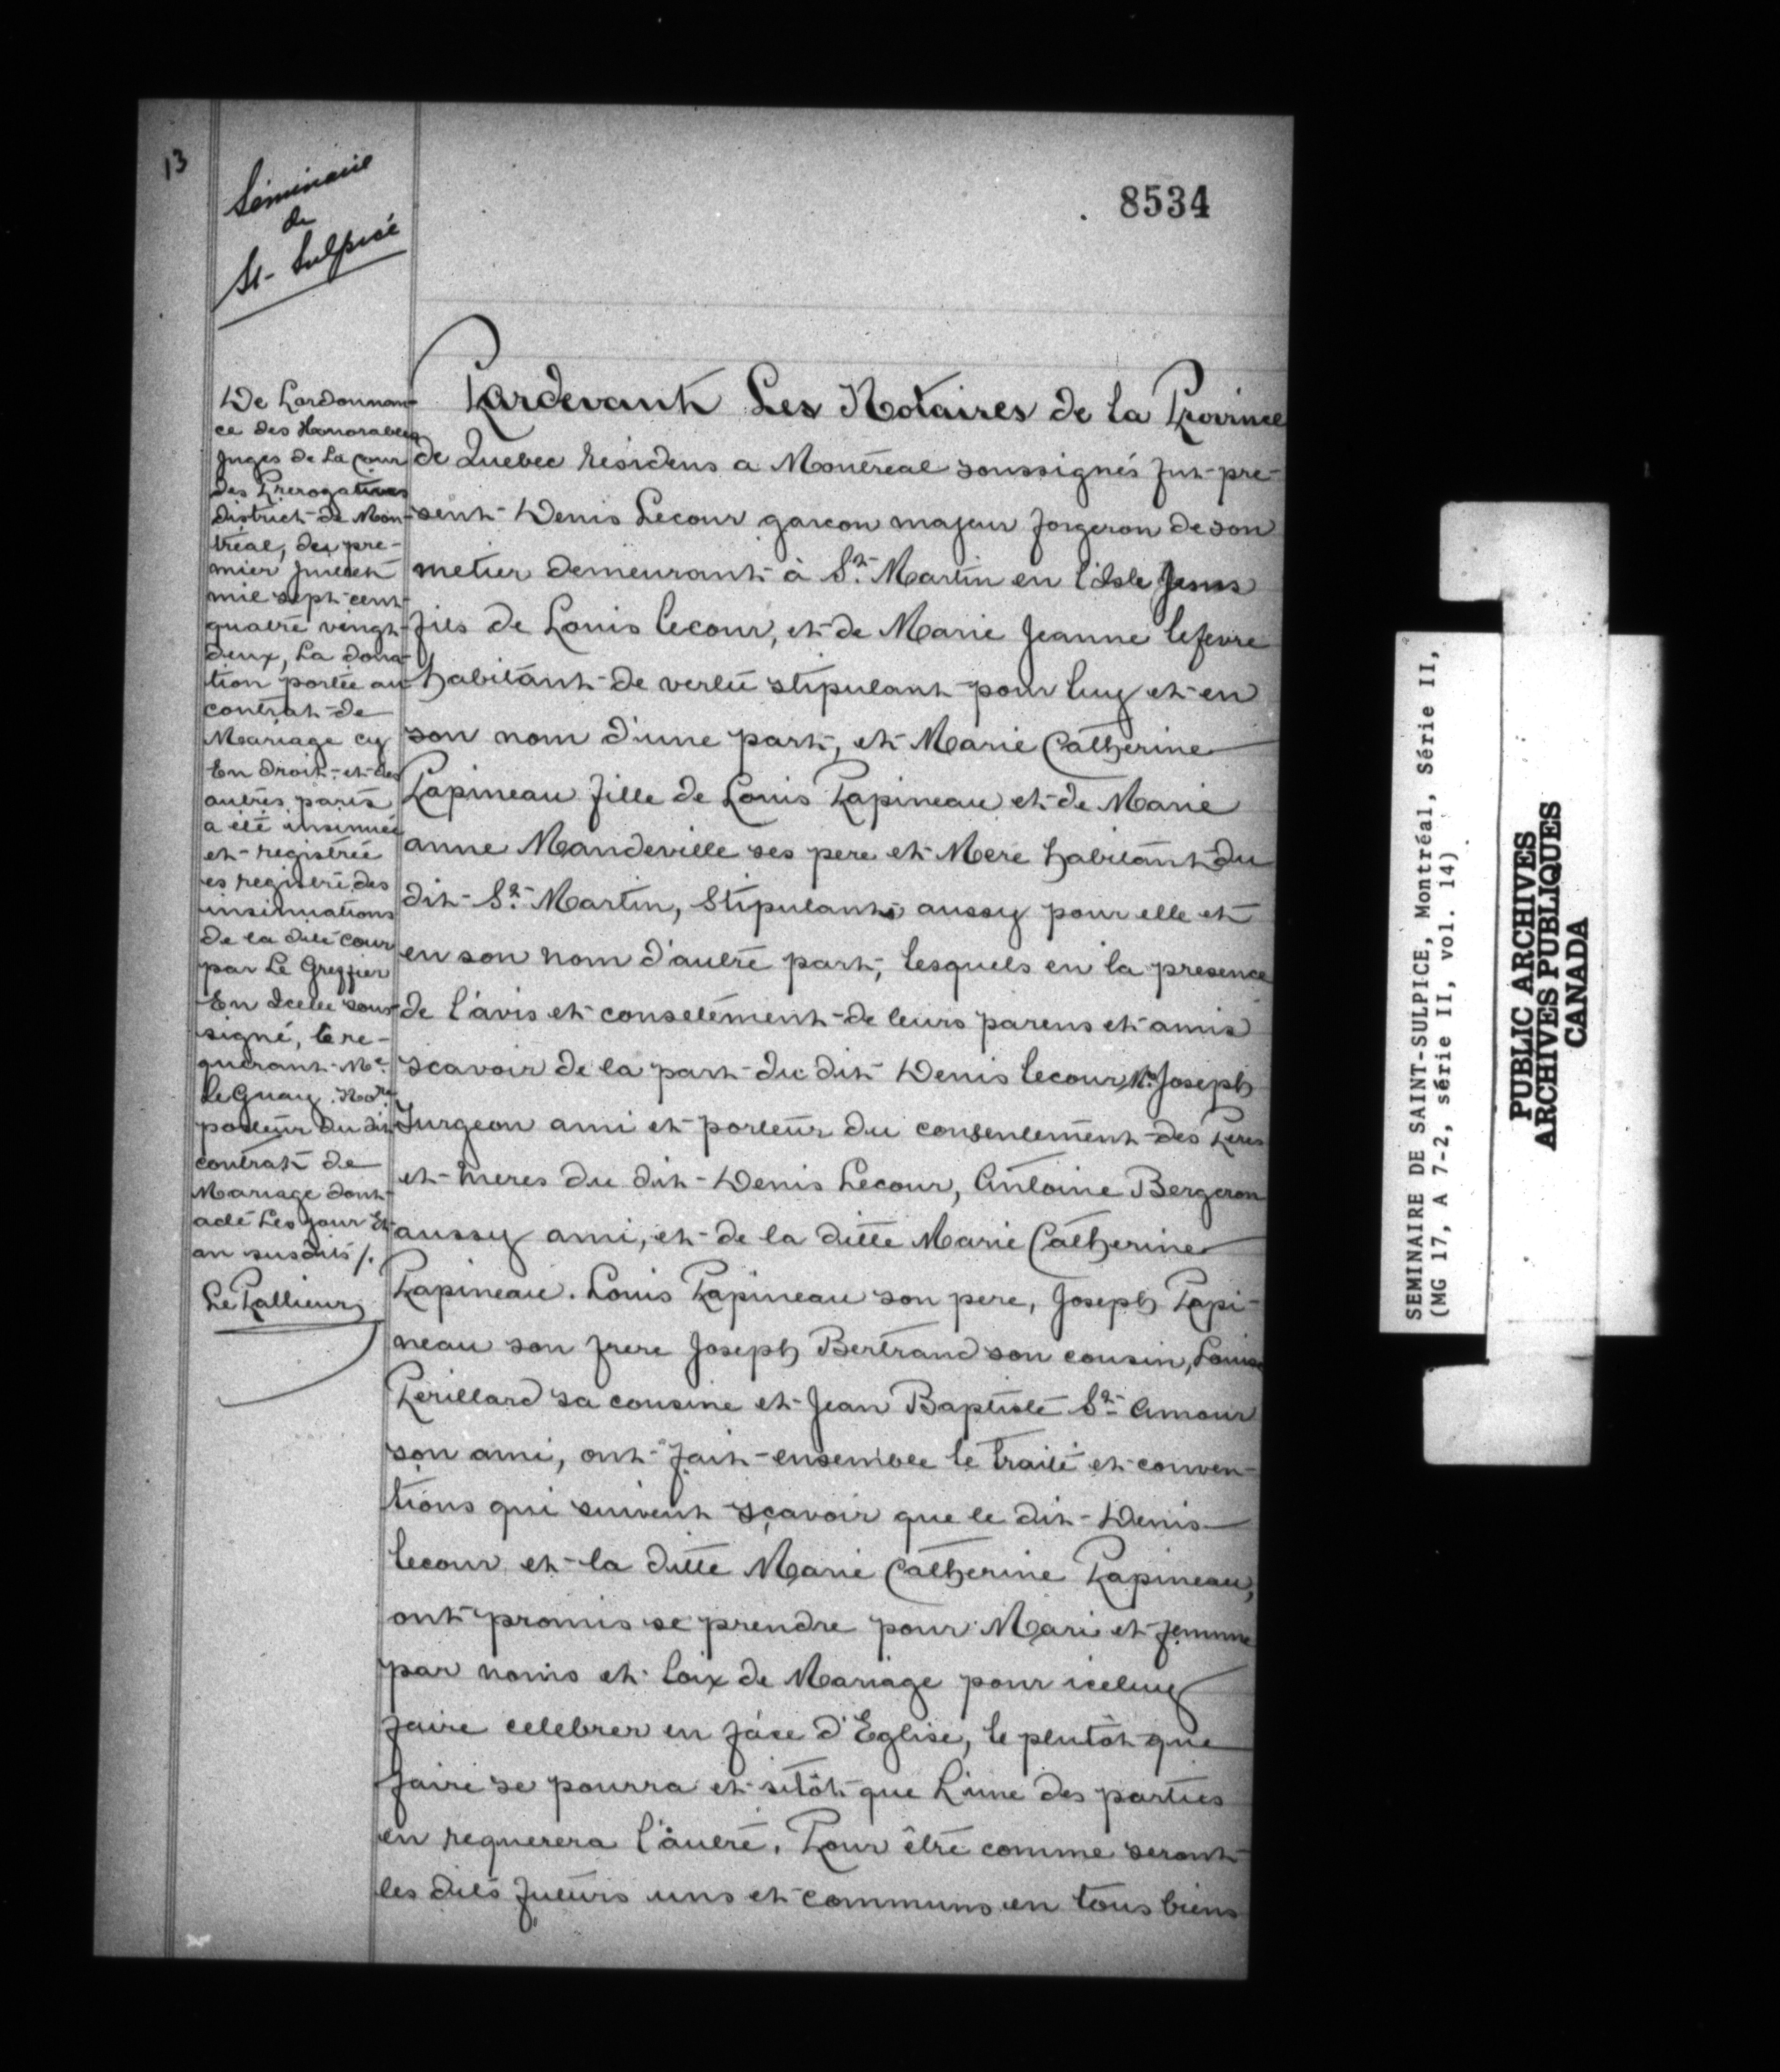 13
Séminaire
de
St-Sulpice
8534
De Lordonnan-
ce des Honorables
Juges de La Cour
des Prerogatives
district de Mon-
tréal, du pre-
mier Juillet
mil sept cent
quatre vingt
deux, La dona-
tion portée au
contrat de
Mariage cy
En droit et des
autres parts
a été insinuée
et registrée
es registre des
insinuations
de la dite Cour
par Le Greffier
En Icelle sous-
signé, le re-
querant Me.
LeGuay. Nore
porteur du dit
contrat de
Mariage dont
acte Les jour Et
an susdits /.
LePallieur
Pardevant Les Notaires de la Province
de Quebec residens a Montréal soussignés fut pre-
sent Denis Lecour garcon majeur forgeron de son
metier demeurant à St. Martin en l'isle Jesus
fils de Louis lecour, et de Marie Jeanne lefevre
habitant de verlu stipulant pour luy et en
son nom d'une part, et Marie Catherine
Papineau fille de Louis Papineau et de Marie
anne Mandeville ses pere et Mere habitant du
dit St. Martin, Stipulants aussy pour elle et
en son nom d'autre part, lesquels en la presence
de l'avis et consetement de leurs parens et amis
scavoir de la part du dit Denis lecour, Mr. Joseph
Turgeon ami et porteur du consentement des Peres
et meres du dit Denis Lecour, Antoine Bergeron
aussy ami, et de la ditte Marie Catherine
Papineau. Louis Papineau son pere, Joseph Papi-
neau son frere Joseph Bertrand son cousin, Louise
Perillard sa cousine et Jean Baptiste St. Amour
son ami, ont fait ensemble le traité et conven-
tions qui suivent sçavoir que le dit Denis
lecour et la ditte Marie Catherine Papineau,
ont promis se prendre pour Mari et femme
par noms et loix de Mariage pour iceluy
faire celebrer en face d'Eglise, le plutôt que
faire se pourra et sitôt que L'une des parties
en requerera l'autre. Pour être comme seront
les dits futurs uns et communs en tous biens
SEMINAIRE DE SAINT-SULPICE, Montréal, Série II,
(MG 17, A 7-2, série II, vol. 14)
PUBLIC ARCHIVES
ARCHIVES PUBLIQUES
CANADA